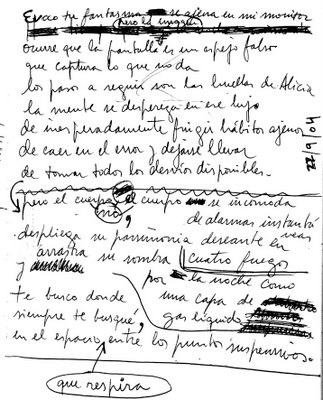 Evoco tu fantasma se aliena en mi monitor
pero la imagen
ocurre que la pantalla es un espejo falso
que captura lo que no da
los pasos a seguir son las huellas de Alicia
la mente se despereza en ese lujo
de inesperadamente fingir hábitos ajenos
de caer en el error y dejarse llevar
de tomar todos los desvíos disponibles.
pero el cuerpo no, el cuerpo se incomoda
de alarmas instantáneas
despliega su parsimonia deseante en
cuatro fuegos
y arrastra su sombra
por la noche como
una capa de
gas líquido
te busco donde
siempre te busqué,
en el espacio, entre los puntos suspensivos.
que respira
22/9/04